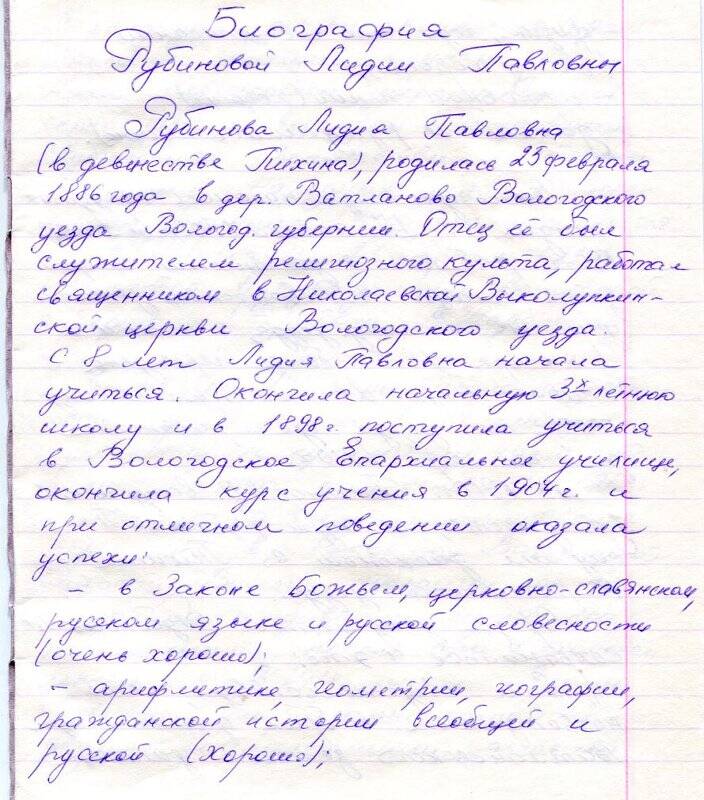 Биография
Рубиновой Лидии Павловны
Рубинова Лидия Павловна
(в девичестве Пихина), родилась 25 февраля
1886 года в дер. Ватланово Вологодского
уезда Вологод. губернии. Отец её был
служителем религиозного культа, работал
священником в Николаевской Выколупкин-
ской церкви Вологодского уезда.
С 8 лет Лидия Павловна начала
учиться. Окончила начальную 3х летнюю
школу и в 1898 г. поступила учиться
в Вологодское Епархиальное училище,
окончила курс учения в 1904 г. и
при отличном поведении оказала
успехи:
- в Законе Божьем, церковно-славянском,
русском языке и русской словесности
(очень хорошо);
- арифметике, геометрии, географии,
гражданской истории всеобщей и
русской (хорошо);